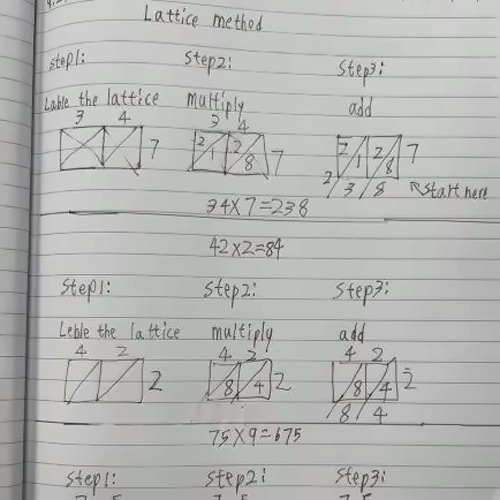 Lattice method
step1: Step2: Step3:
Lable the lattice multiply add
3 4 3 4
7 2 1 2 8 7 2 1 2 8 7
2 3 8 Start here
34x7=238
42x2=84
Step1: Step2: Step3:
Leble the lattice multiply add
4 2 4 2 4 2
2 8 4 2 8 4 2
8 4
75x9=675
Step1: Step2: Step3: